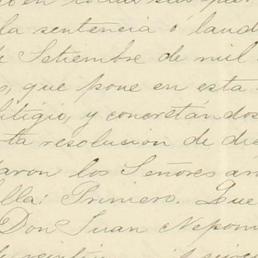 la sentencia ó laud
Setiembre de mil
, que pone en esta
litigio, y concretándos
ta resolucion de di
aron los Señores ar
lla: Primero. Que
Don Juan Nepom